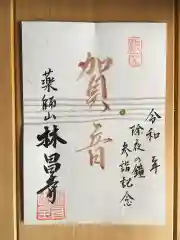 令和 年
除夜の鐘
参詣記念
賀音
薬師山
林昌寺